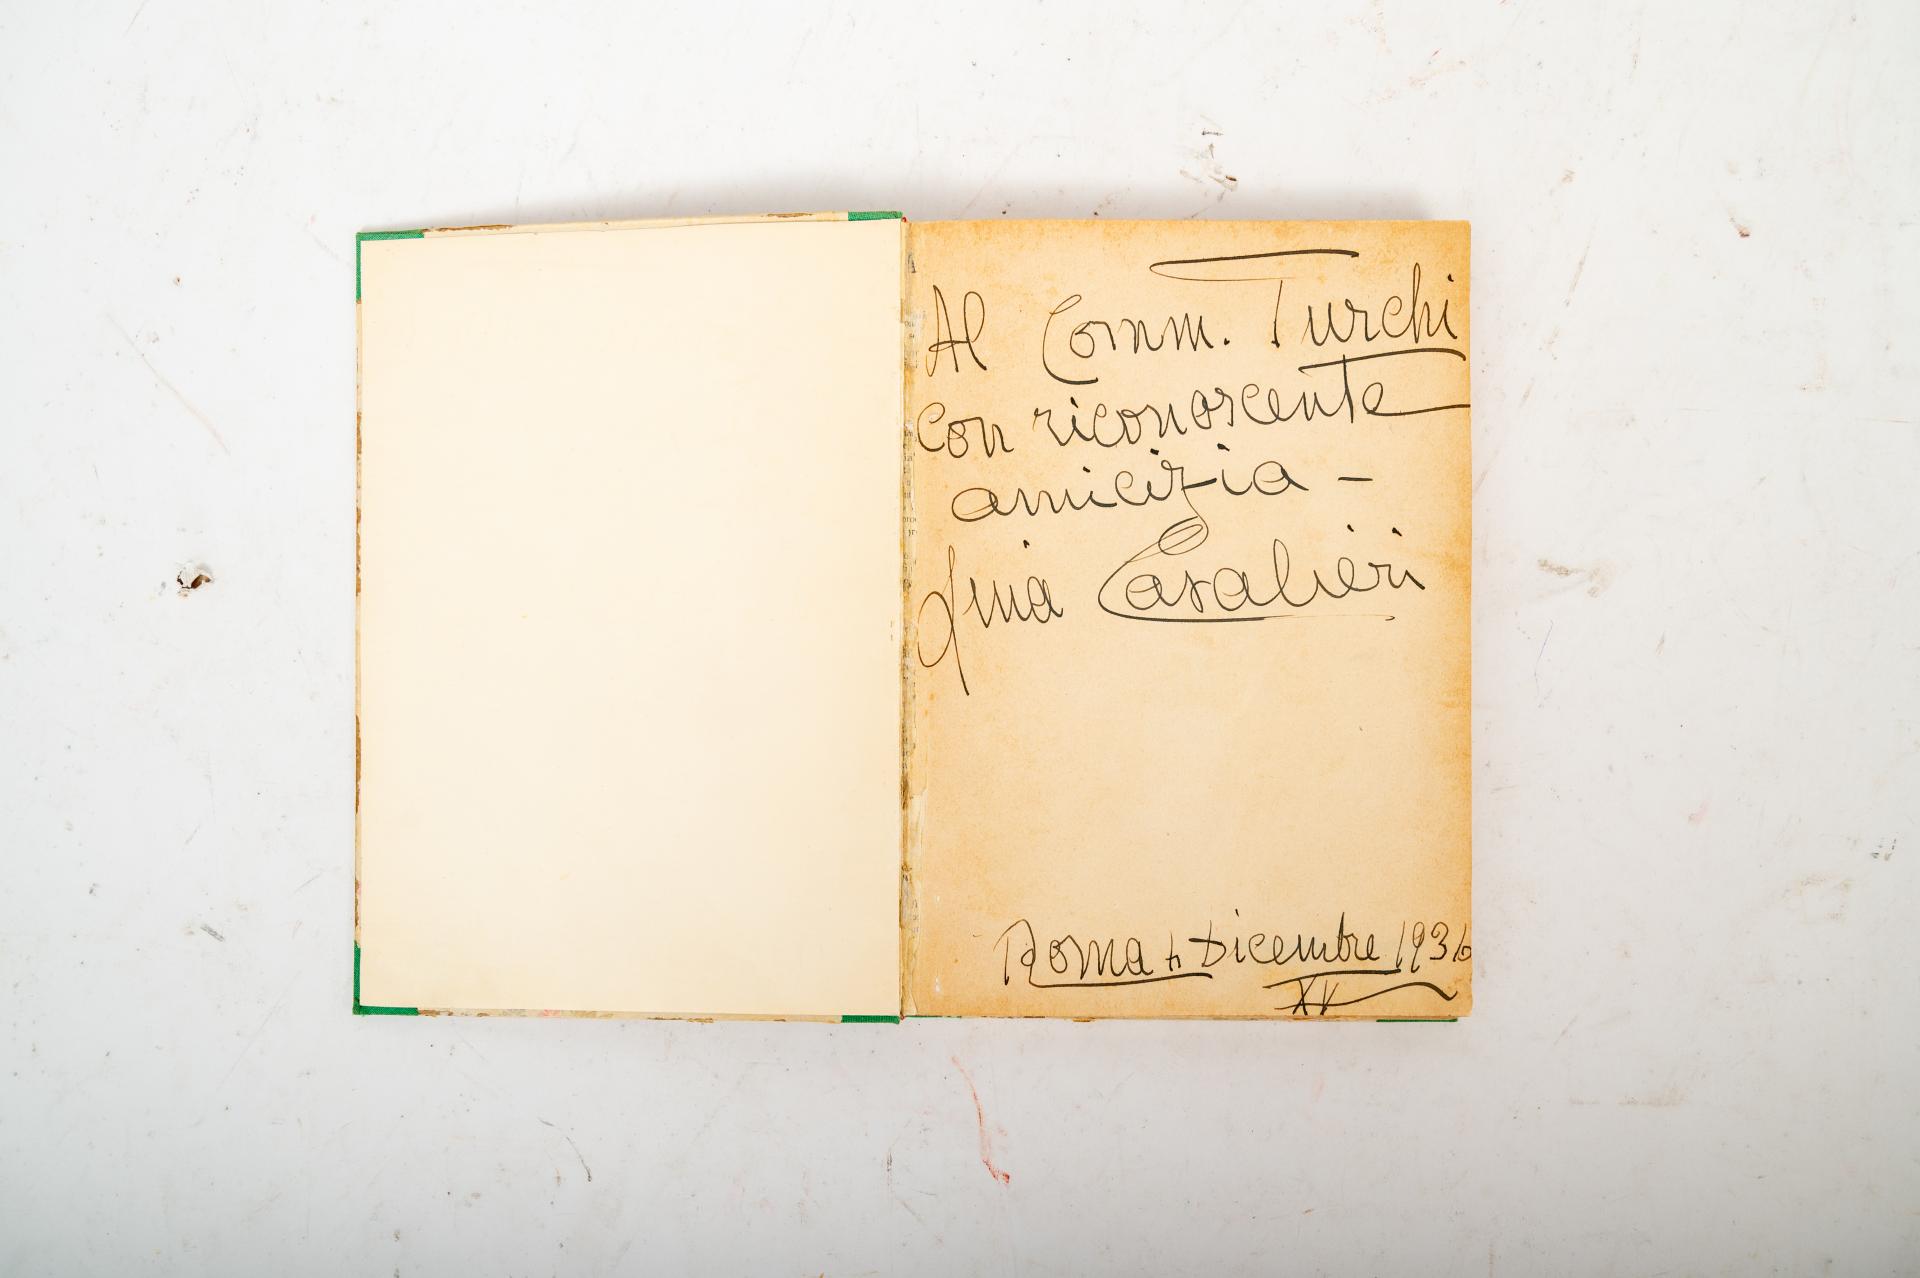 Al Comm. Turchi
con riconoscente
amicizia -
Lina Cavalieri
Roma Dicembre 1936
XV